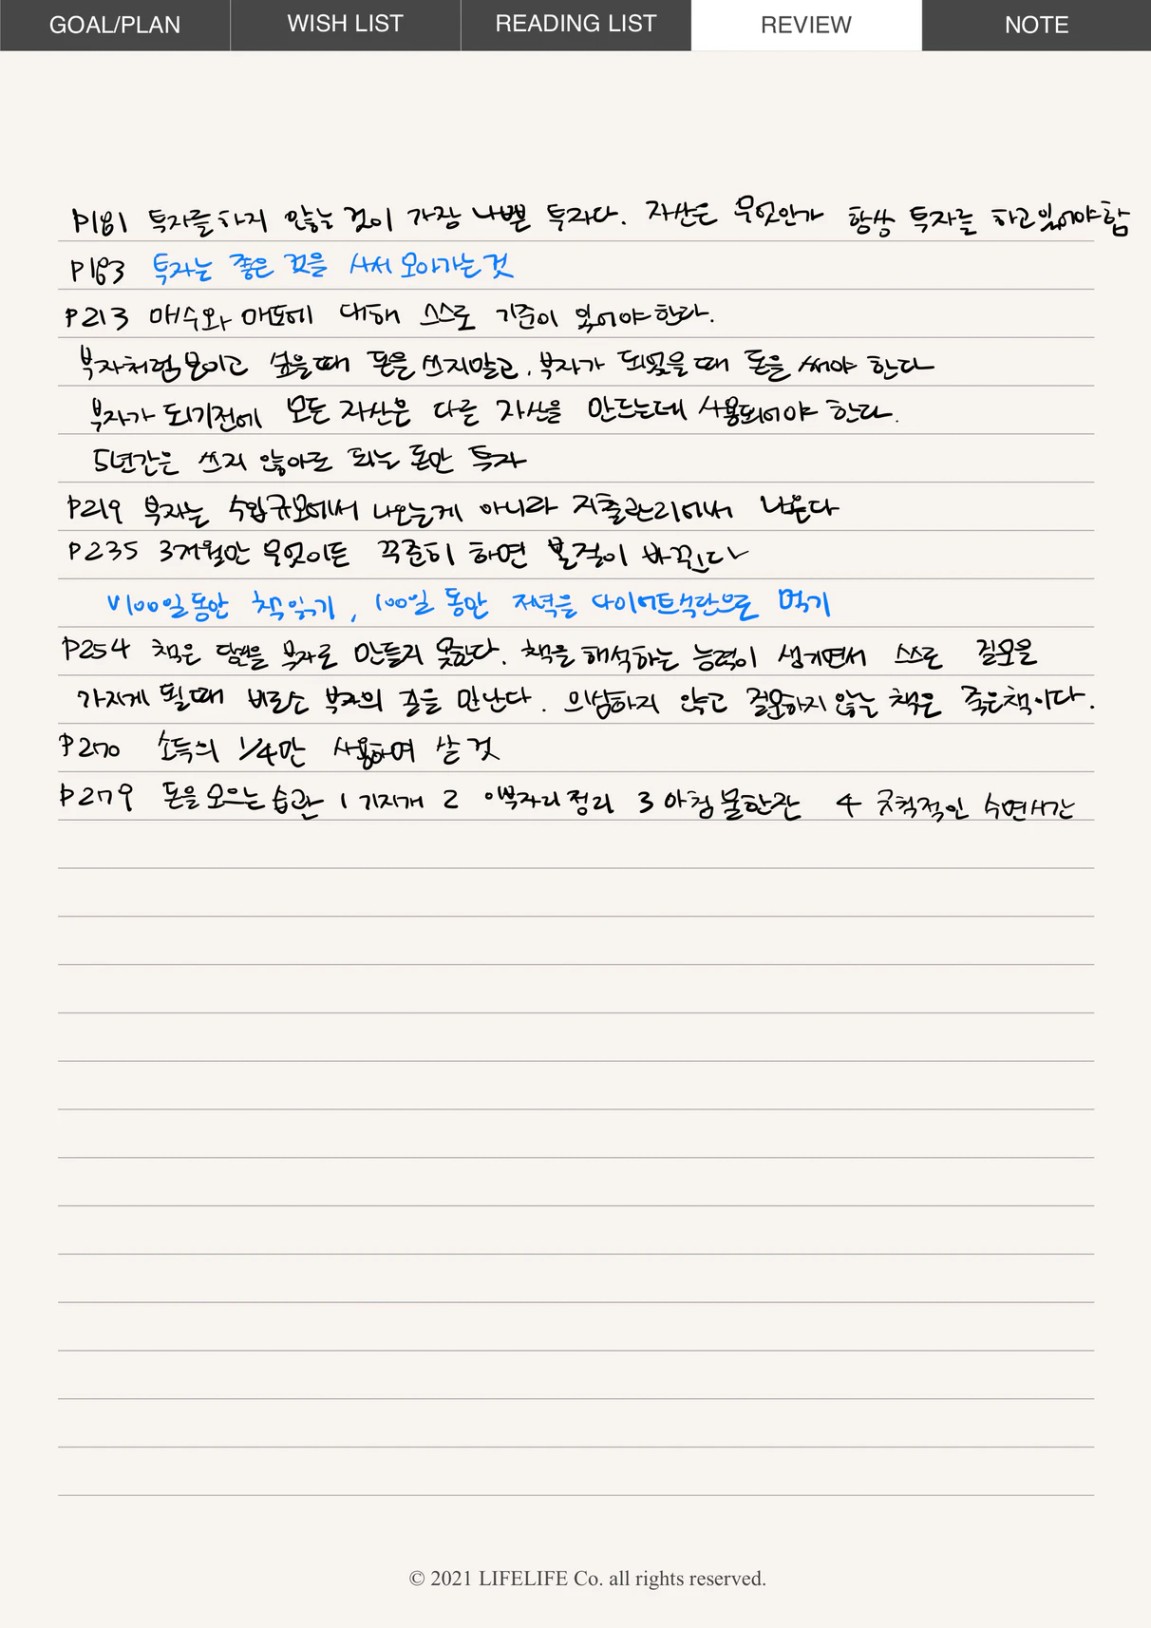 GOAL/PLAN WISH LIST READING LIST REVIEW NOTE
P181 투자를 하지 않는 것이 가장 나쁜 투자다. 자산은 무엇인가 항상 투자를 하고있어야함
P183 투자는 좋은 것을 사서 모아가는 것
P213 매수와 매도에 대해 스스로 기준이 있어야 한다.
부자처럼 보이고 싶을때 돈을 쓰지말고, 부자가 되었을 때 돈을 써야 한다
부자가 되기전에 모든 자산은 다른 자산을 만드는데 사용되어야 한다.
5년간은 쓰지 않아도 되는 돈만 투자
P219 부자는 수입규모에서 나오는게 아니라 지출관리에서 나온다
P235 3개월만 무엇이든 꾸준히 하면 본질이 바뀐다
V100일동안 책읽기, 100일 동안 저녁을 다이어트식단으로 먹기
P254 책은 당신을 부자로 만들지 못한다. 책을 해석하는 능력이 생기면서 스스로 질문을
가지게 될때 비로소 부자의 길을 만난다. 의심하지 않고 질문하지 않는 책은 죽은책이다.
P270 소득의 1/4만 사용하며 살 것
P279 돈을 모으는 습관 1 기지개 2 이부자리정리 3 아침 물한잔 4 규칙적인 수면시간
© 2021 LIFELIFE Co. all rights reserved.